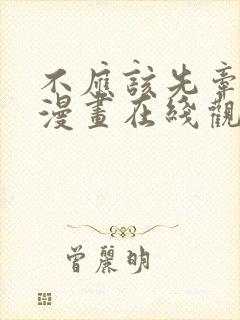 不應該先牽
漫畫在綫觀
曾麗明